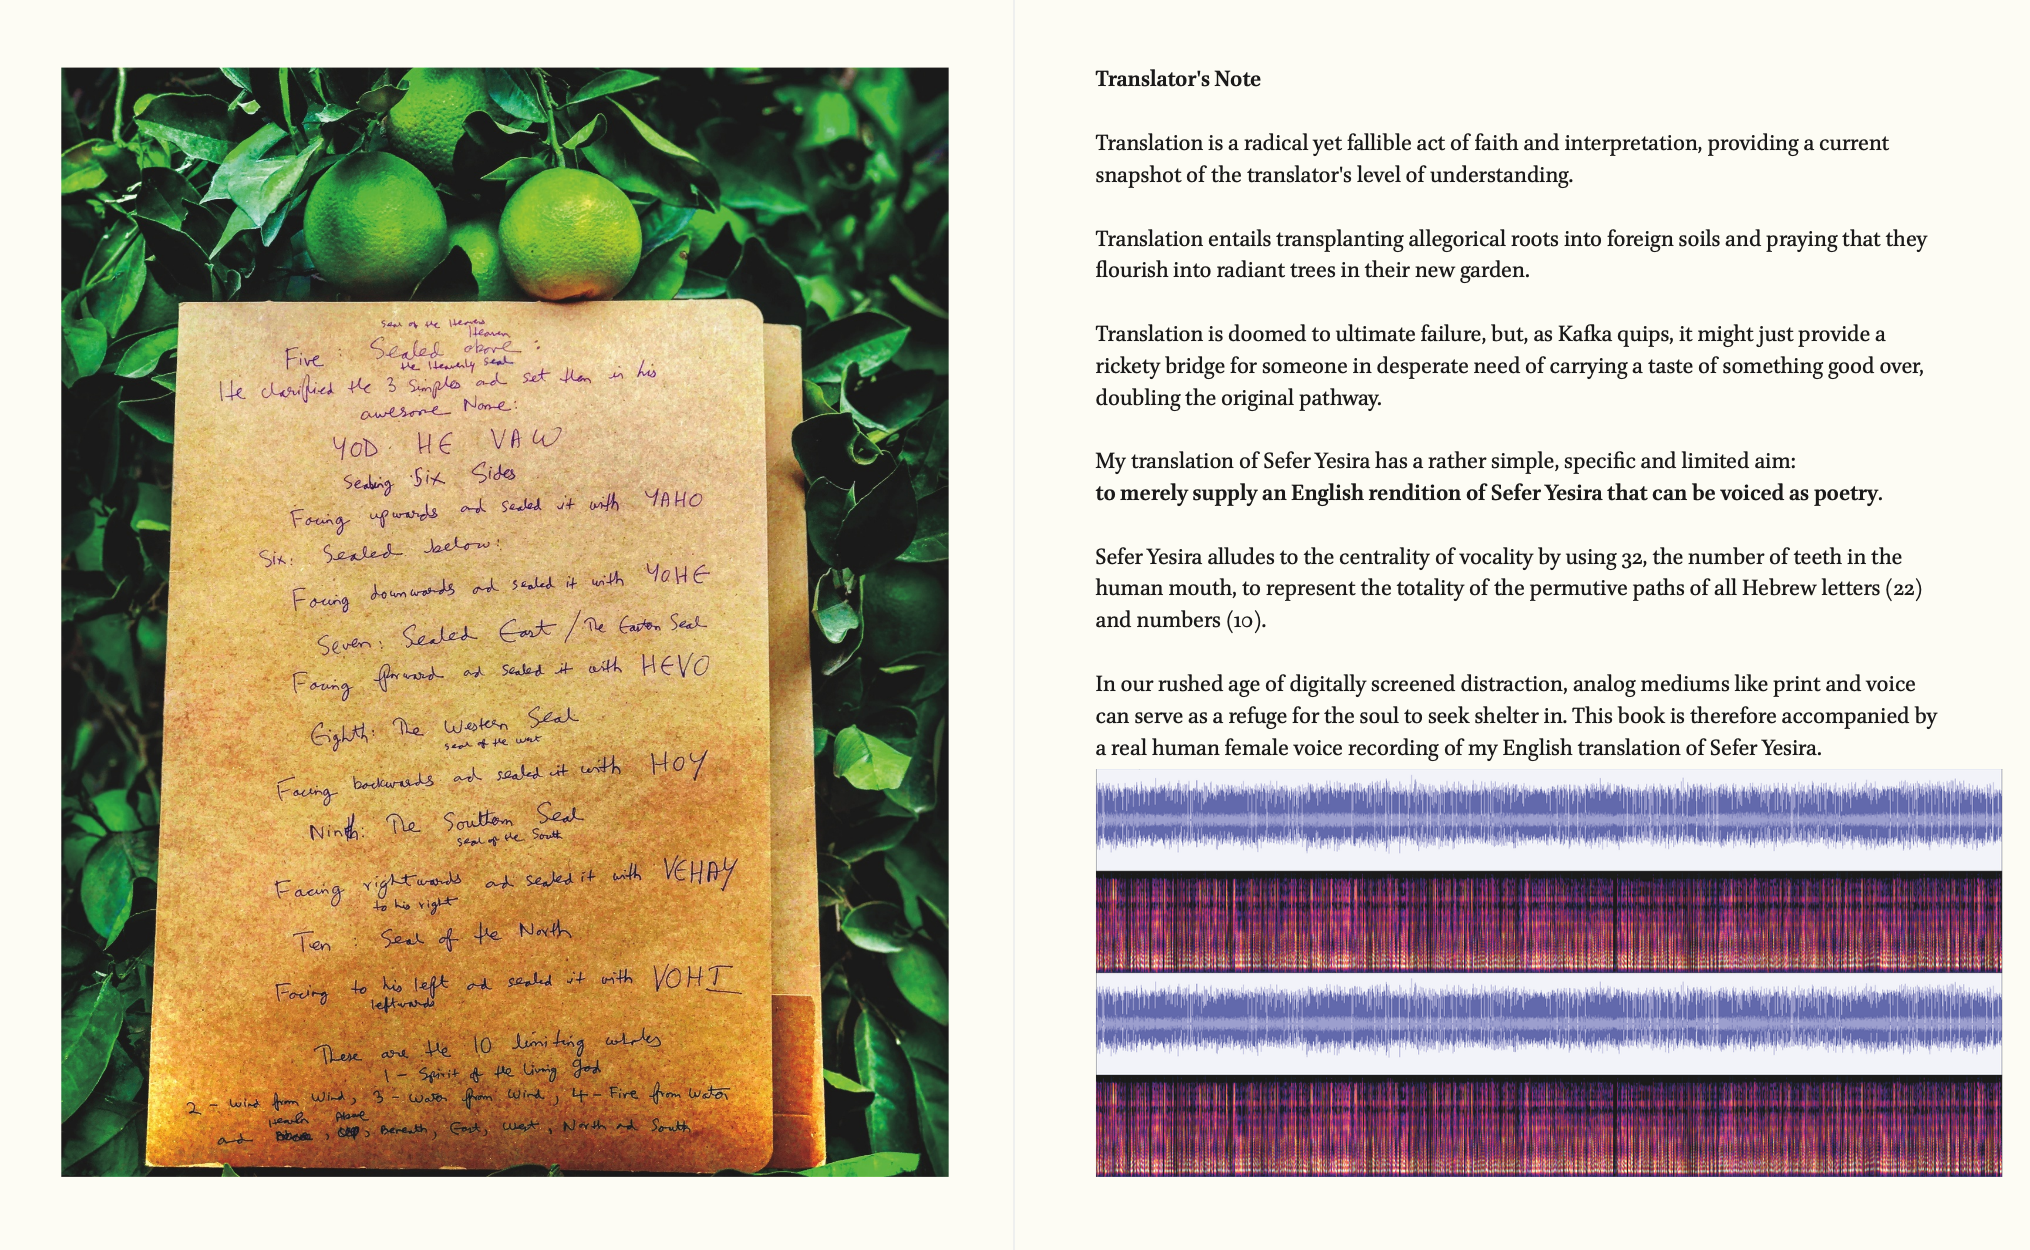 seal of the Heavens
Heaven
Five : Sealed above :
the Heavenly Seal
He clarified the 3 simples and set them in his
awesome Name:
YOD HE VAW
Sealing Six Sides
Facing upwards and sealed it with YAHO
Six: Sealed below:
Facing downwards and sealed it with YOHE
Seven: Sealed East / The Eastern Seal
Facing forward and sealed it with HEVO
Eighth: The Western Seal
seal of the west
Facing backwards and sealed it with HOY
Ninth: The Southern Seal
seal of the South
Facing rightwards and sealed it with VEHAY
to his right
Ten : Seal of the North
Facing to his left and sealed it with VOHI
leftwards
These are the 10 limiting wholes
1 - Spirit of the living god
2 - Wind from Wind, 3 - Water from Wind, 4 - Fire from Water
Above
and , , Beneath, East, West, North and South
Translator's Note
Translation is a radical yet fallible act of faith and interpretation, providing a current
snapshot of the translator's level of understanding.
Translation entails transplanting allegorical roots into foreign soils and praying that they
flourish into radiant trees in their new garden.
Translation is doomed to ultimate failure, but, as Kafka quips, it might just provide a
rickety bridge for someone in desperate need of carrying a taste of something good over,
doubling the original pathway.
My translation of Sefer Yesira has a rather simple, specific and limited aim:
to merely supply an English rendition of Sefer Yesira that can be voiced as poetry.
Sefer Yesira alludes to the centrality of vocality by using 32, the number of teeth in the
human mouth, to represent the totality of the permutive paths of all Hebrew letters (22)
and numbers (10).
In our rushed age of digitally screened distraction, analog mediums like print and voice
can serve as a refuge for the soul to seek shelter in. This book is therefore accompanied by
a real human female voice recording of my English translation of Sefer Yesira.